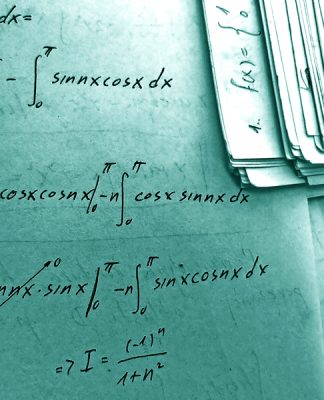 dx=
- ∫₀^π sinnxcosx dx
cosxcosnx|₀^π -n∫₀^π cosx sinnx dx
nnx·sinx|₀^π -n∫₀^π sinxcosnx dx
0
=> I = (-1)^n / 1+n²
1. f(x) = { 0